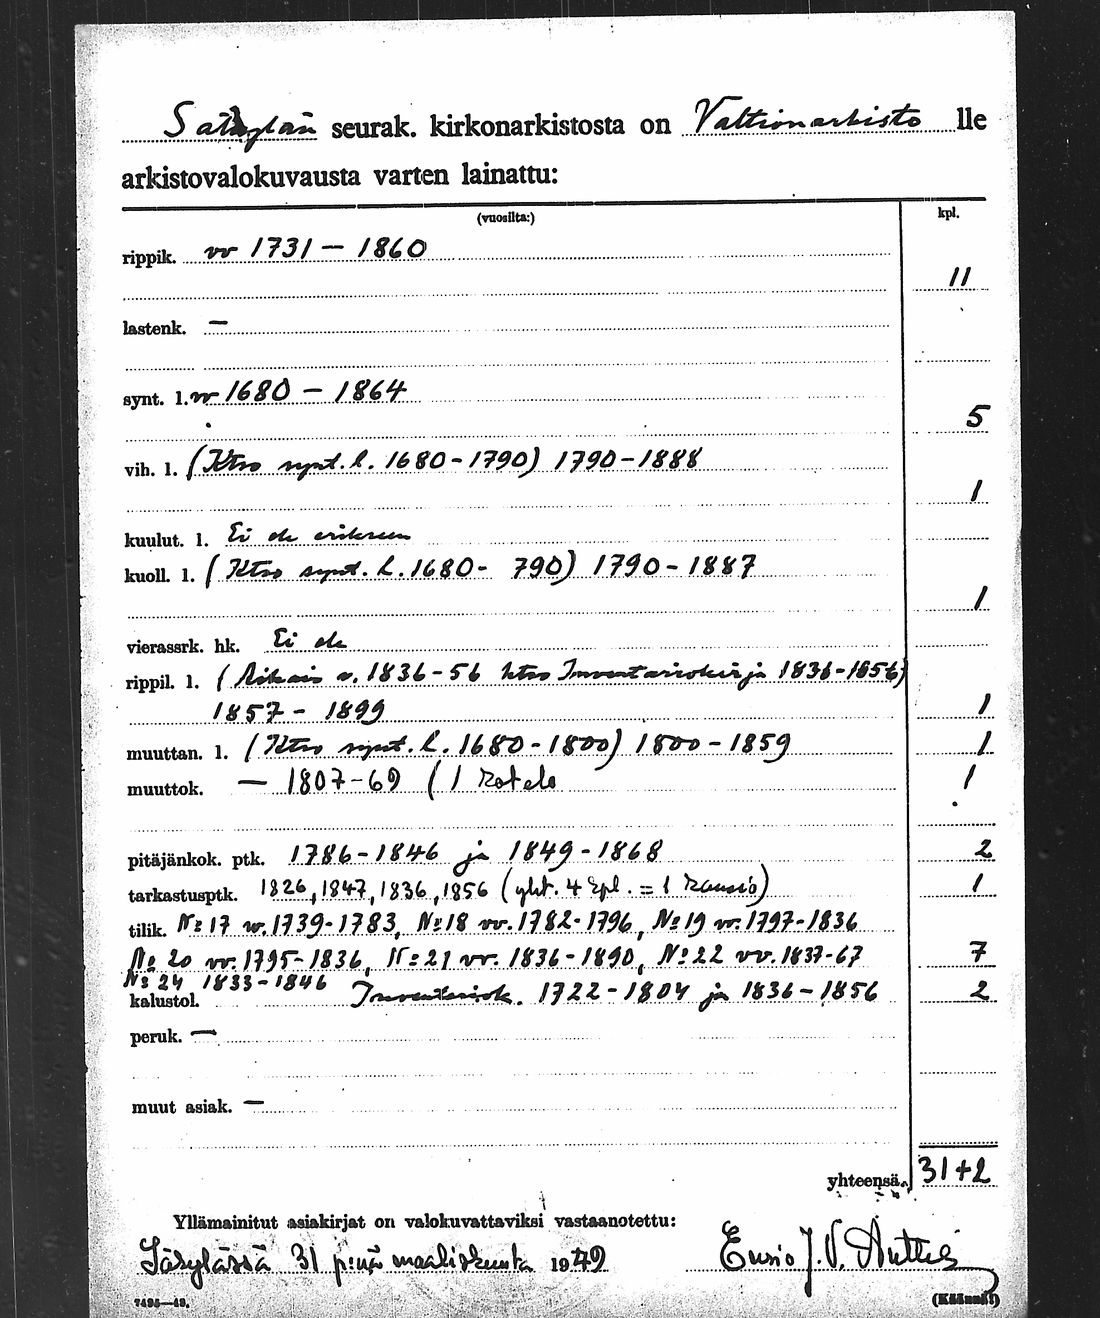 Säkylän seurak. kirkonarkistosta on Valtionarkisto lle
arkistovalokuvausta varten lainattu:
(vuosilta:) kpl.
rippik. vv 1731 – 1860
11
lastenk. –
synt. l. vv 1680 – 1864
5
vih. l. (Ktso synt. l. 1680-1790) 1790-1888
1
kuulut. l. Ei ole erikseen
kuoll. l. (Ktso synt. l. 1680- 790) 1790-1887
1
vierassrk. hk. Ei ole
rippil. l. ( v. 1836-56 ktso Inventariokirja 1836-1856)
1857 - 1899 1
muuttan. l. (Ktso synt. l. 1680-1800) 1800-1859 1
muuttok. — 1807-69 (1 kotelo 1
pitäjänkok. ptk. 1786-1846 ja 1849-1868 2
tarkastusptk. 1826, 1847, 1836, 1856 (yht. 4 kpl. = 1 kansio) 1
tilik. No 17 vv. 1739-1783, No 18 vv. 1782-1796, No 19 vv. 1797-1836
No 20 vv. 1795-1836, No 21 vv. 1836-1890, No 22 vv. 1837-67 7
No 24 1833-1846
kalustol. Inventariok. 1722-1804 ja 1836-1856 2
peruk. —
muut asiak. —
yhteensä 31+2
Yllämainitut asiakirjat on valokuvattaviksi vastaanotettu:
Säkylässä 31 p:nä maaliskuuta 1949 Ensio J. V. Anttila
7495—48. (Käännä!)